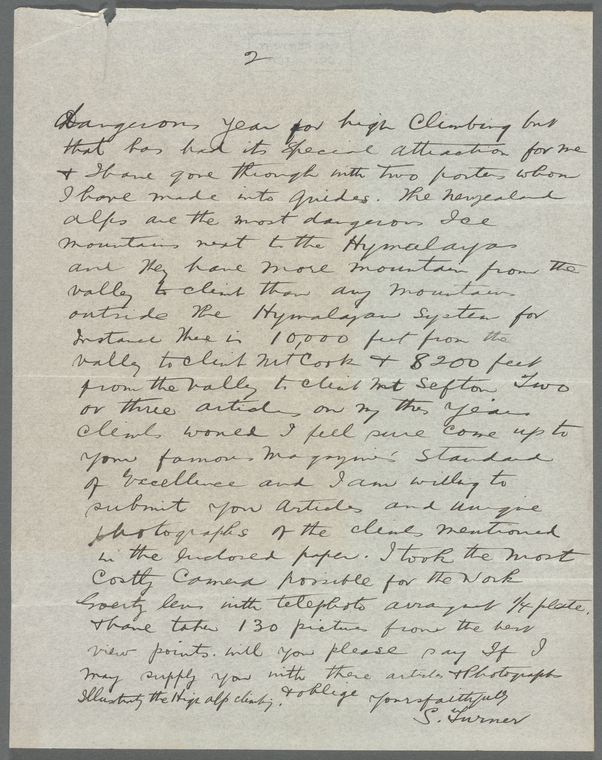 2
Dangerous year for high Climbing but
that has had its special attraction for me
& I have gone through with two porters whom
I have made into guides. The Newzealand
alps are the most dangerous Ice
mountains next to the Hymalayas
and they have more mountain from the
valley to climb than any mountains
outside the Hymalayan System for
Instance there is 10,000 feet from the
valley to climb Mt Cook & 8200 feet
from the valley to climb Mt Sefton Two
or three articles on my this years
climbs would I feel sure come up to
your famous Magazine's Standard
of Excellence and I am willing to
submit you articles and unique
photographs of the climbs mentioned
in the Enclosed paper. I took the most
Costly Camera possible for the Work
Goertz lens with telephoto 1/4 plate.
& have taken 130 pictures from the best
view points. will you please say If I
may supply you with these articles & Photographs
Illustrating the High alp climbing. & oblige yours faithfully
S. Turner